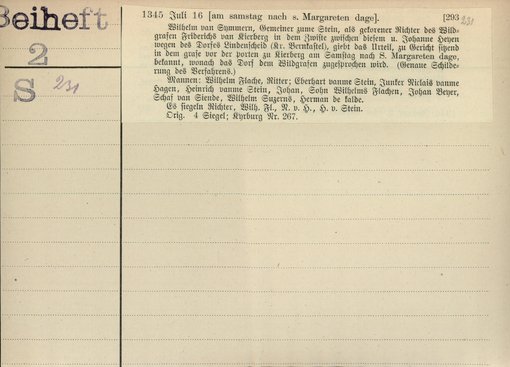 Beiheft
2
S 231
1345 Juli 16 [am samstag nach s. Margareten dage]. [293 231
Wilhelm van Stummern, Gemeiner zume Stein, als gekorener Richter des Wild-
grafen Friderichs van Kierberg in dem Zwiste zwischen diesem u. Johanne Heyen
wegen des Dorfes Lindenscheid (Kr. Bernkastel), giebt das Urteil, zu Gericht sitzend
in dem grase vor der porten zu Kierberg am Samstag nach S. Margareten dage,
bekannt, wonach das Dorf dem Wildgrafen zugesprochen wird. (Genaue Schilde-
rung des Verfahrens.)
Mannen: Wilhelm Flache, Ritter; Eberhart vanme Stein, Junker Niclais vanme
Hagen, Heinrich vanme Stein, Johan, Sohn Wilhelms Flachen, Johan Beyer,
Schaf van Siende, Wilhelm Suzerns, Herman de kalde.
Es siegeln Richter, Wilh. Fl., N. v. H., H. v. Stein.
Orig. 4 Siegel; Kyrburg Nr. 267.